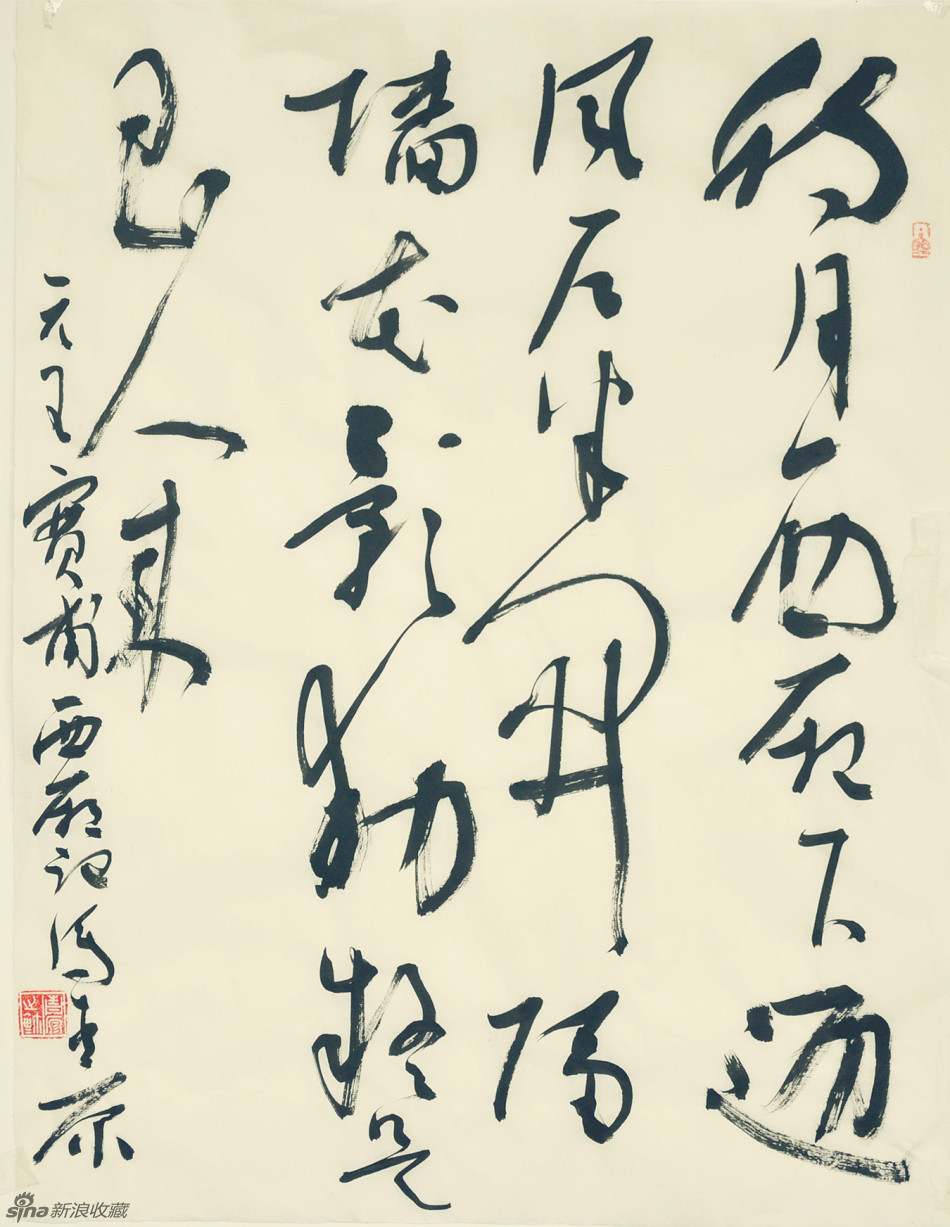 待月西厢下迎
风户半開隔
墙花影動疑是
人来
元王實甫西厢记冯
sina新浪收藏